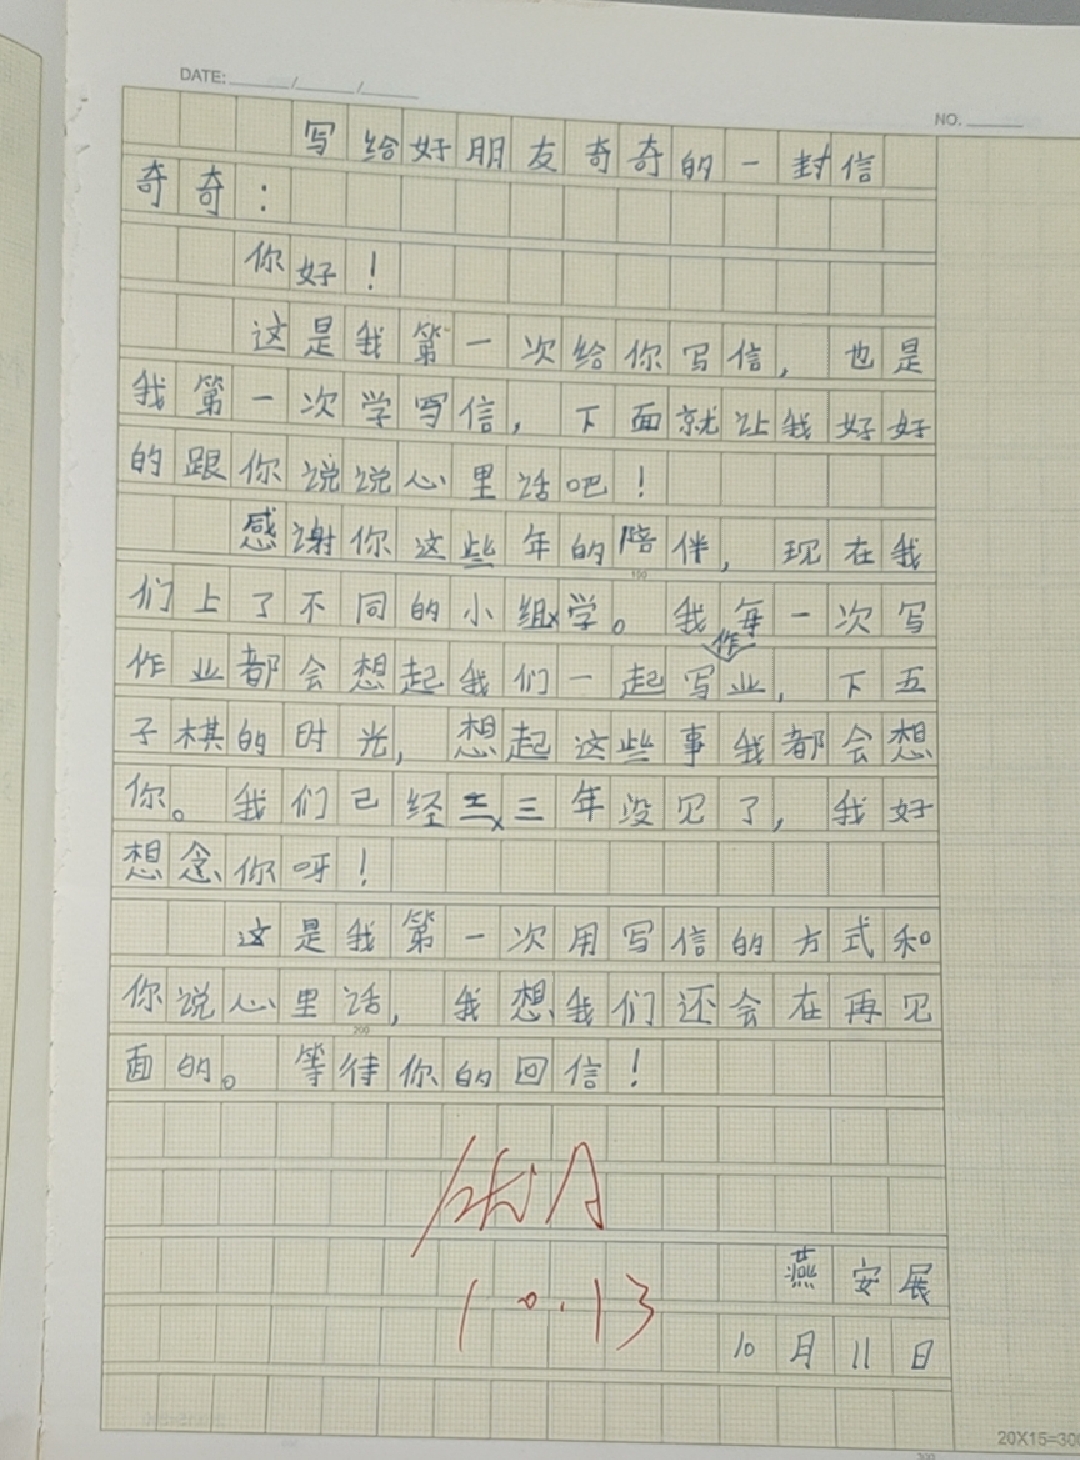 DATE: / /
NO.
写给好朋友奇奇的一封信
奇奇：
你好！
这是我第一次给你写信，也是
我第一次学写信，下面就让我好好
的跟你说说心里话吧！
感谢你这些年的陪伴，现在我
们上了不同的小组学。我每一次写
作业都会想起我们一起写作业，下五
子棋的时光，想起这些事我都会想
你。我们已经三年没见了，我好
想念你呀！
这是我第一次用写信的方式和
你说心里话，我想我们还会在再见
面的。等待你的回信！
优A
10.13
燕安展
10月11日
100
200
300
20X15=300